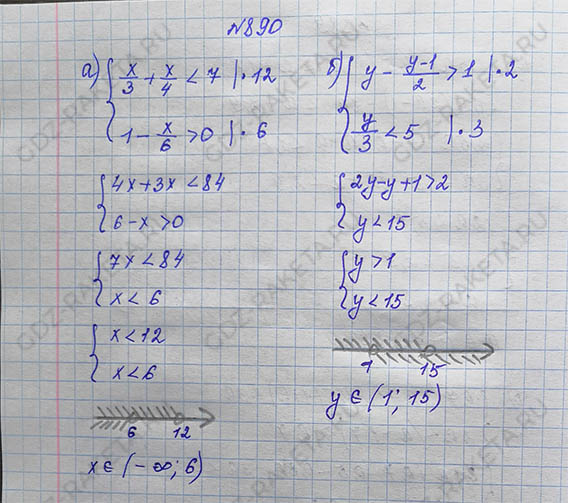 №890
а) { x/3 + x/4 < 7 | · 12
1 - x/6 > 0 | · 6
{ 4x+3x < 84
6-x > 0
{ 7x < 84
x < 6
{ x < 12
x < 6
6 12
x ∈ (-∞; 6)
б) { y - (y-1)/2 > 1 | · 2
y/3 < 5 | · 3
{ 2y-y+1 > 2
y < 15
{ y > 1
y < 15
1 15
y ∈ (1; 15)
GDZ-RAKETA.RU